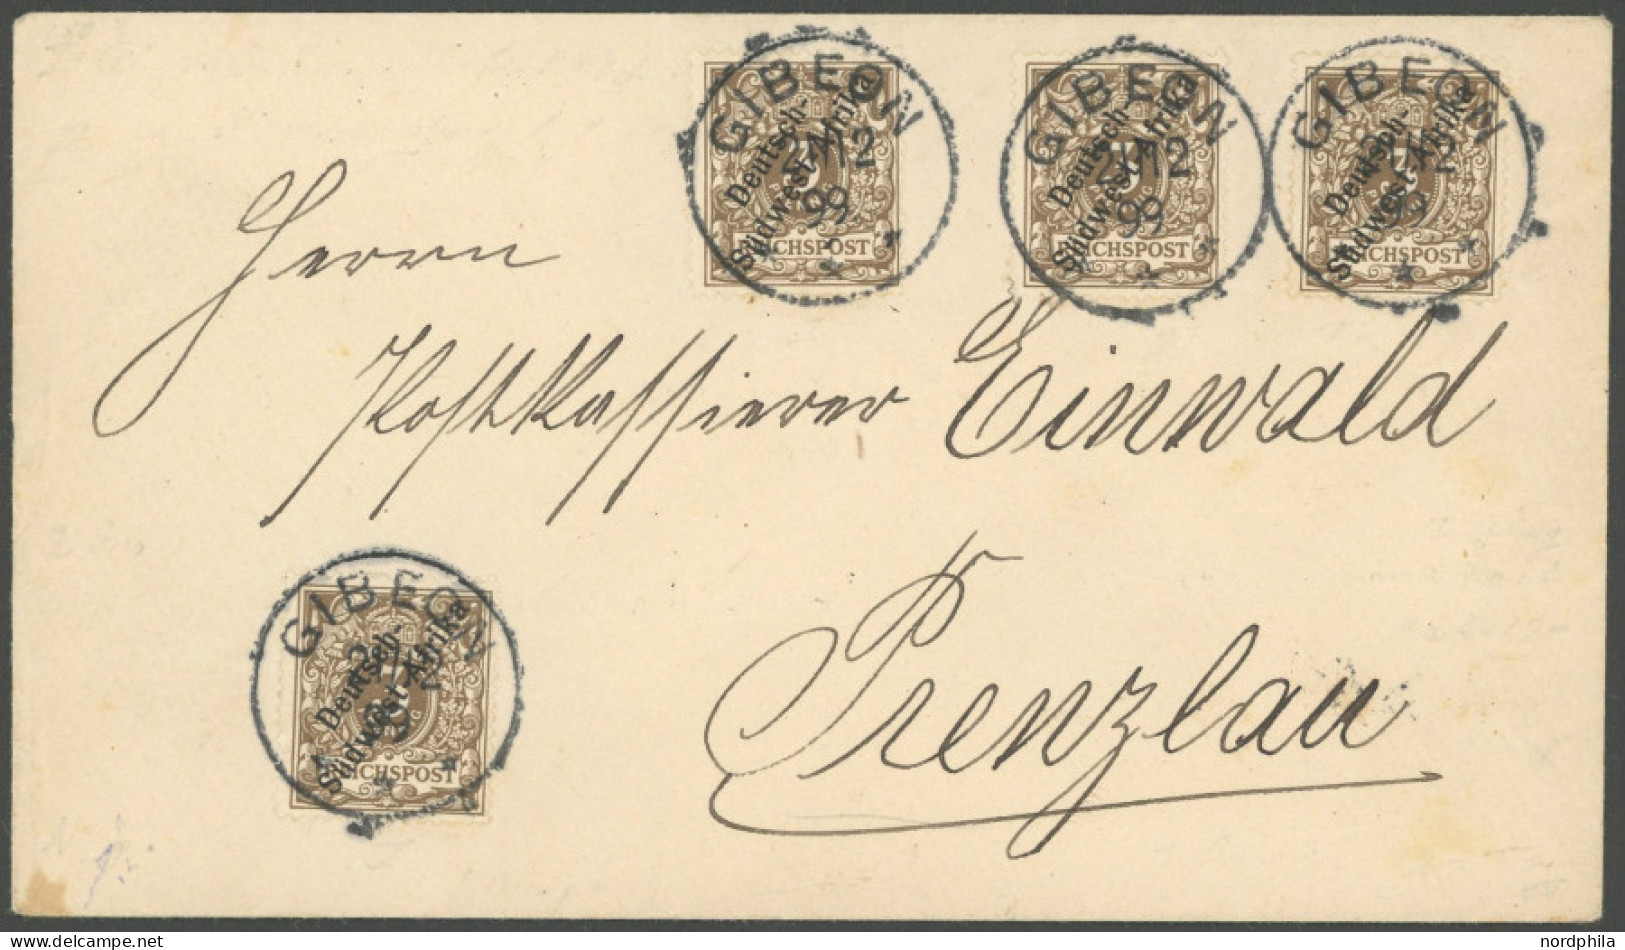 GIBEON
21/12
99
Deutsch-
Südwest-Afrika
3
REICHSPOST
GIBEON
21/12
99
Deutsch-
Südwest-Afrika
3
REICHSPOST
GIBEON
99
Deutsch-
Südwest-Afrika
3
REICHSPOST
Herrn
Postkassierer Einwald
Prenzlau
GIBEON
Deutsch-
Südwest-Afrika
REICHSPOST
www.delcampe.net
nordphila